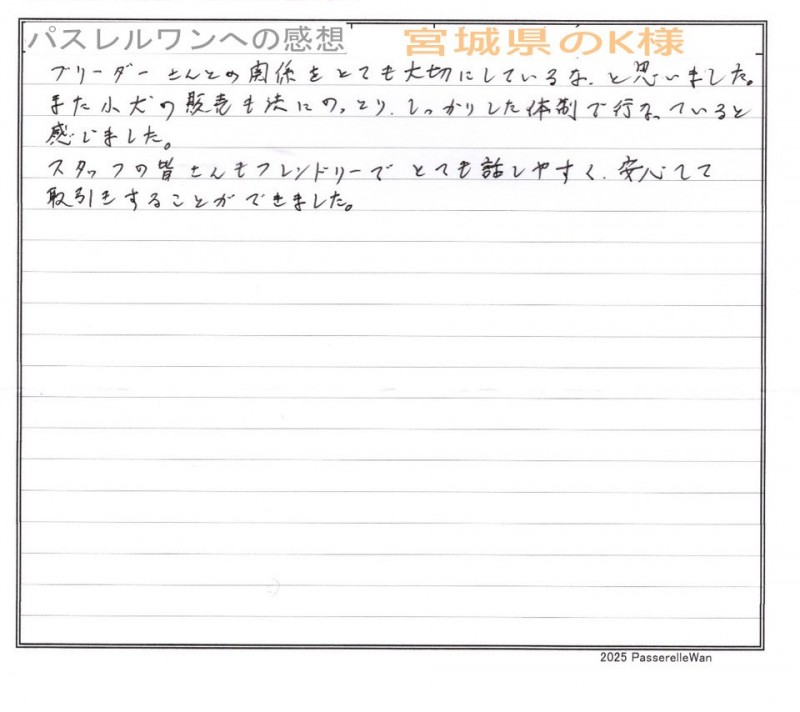 パスレルワンへの感想 宮城県のK様
ブリーダーさんとの関係をとても大切にしているな、と思いました。
また小犬の販売も法にのっとり、しっかりした体制で行なっていると
感じました。
スタッフの皆さんもフレンドリーでとても話しやすく、安心して
取引をすることができました。
2025 PasserelleWan